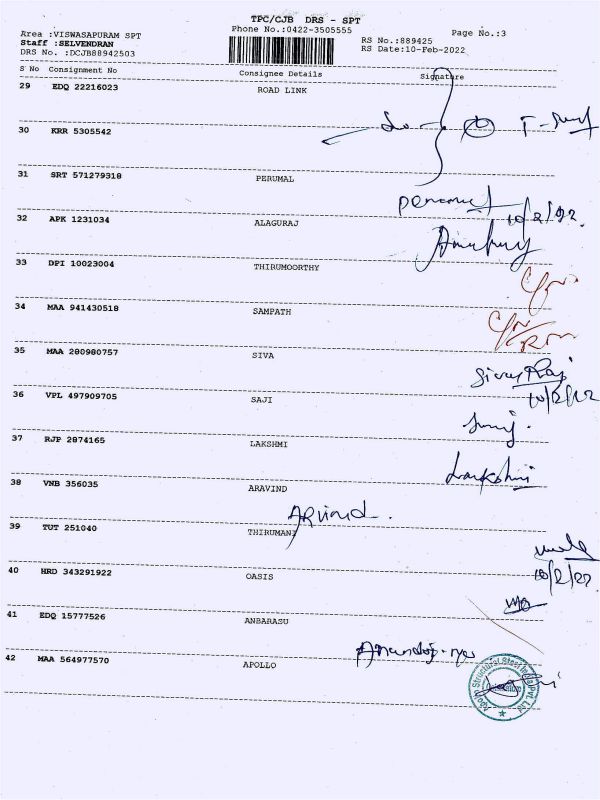 TPC/CJB DRS - SPT
Area :VISWASAPURAM SPT Phone No.:0422-3505555 RS No.:889425 Page No.:3
Staff :SELVENDRAN RS Date:10-Feb-2022
DRS No. :DCJB88942503
S No Consignment No Consignee Details Signature
29 EDQ 22216023 ROAD LINK
30 KRR 5305542
31 SRT 571279318 PERUMAL
10/2/22.
32 APK 1231034 ALAGURAJ
33 DPI 10023004 THIRUMOORTHY
34 MAA 941430518 SAMPATH
35 MAA 280980757 SIVA
10/2/22
36 VPL 497909705 SAJI
37 RJP 2874165 LAKSHMI
Lakshmi
38 VNB 356035 ARAVIND
Arvind
39 TUT 251040 THIRUMANI
10/2/22
40 HRD 343291922 OASIS
41 EDQ 15777526 ANBARASU
42 MAA 564977570 APOLLO